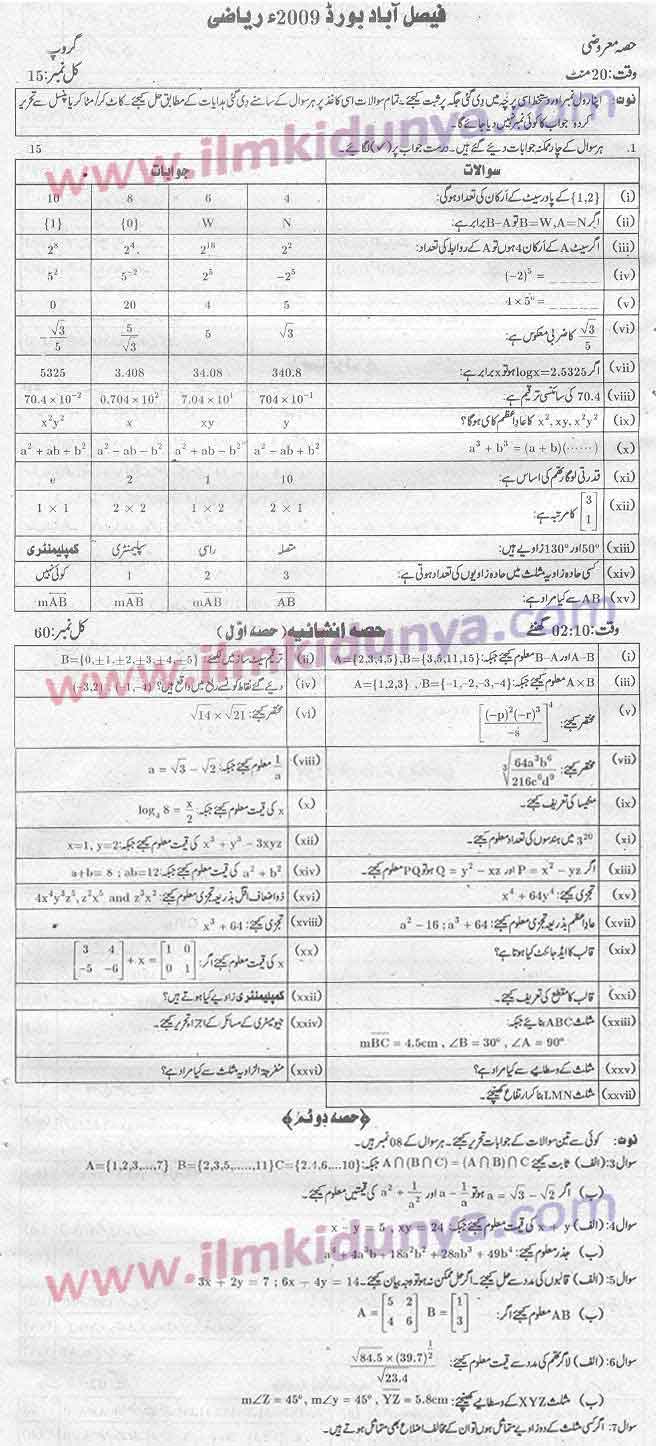 فیصل آباد بورڈ 2009ء ریاضی
حصہ معروضی گروپ
وقت: 20 منٹ کل نمبر: 15
نوٹ: اپنا رول نمبر اور دستخط اسی پرچہ میں دی گئی جگہ پر ثبت کیجئے۔ تمام سوالات اسی کاغذ پر ہر سوال کے سامنے دی گئی ہدایات کے مطابق حل کیجئے۔ کاٹ کر/مٹا کر یا پنسل سے تحریر
کردہ جواب کا کوئی نمبر نہیں دیا جائے گا۔
1. ہر سوال کے چار ممکنہ جوابات دیئے گئے ہیں۔ درست جواب پر (✓) لگائیے۔ 15
سوالات جوابات
(i) {1,2} کے پاور سیٹ کے ارکان کی تعداد ہوگی: 4 6 8 10
(ii) اگر B=W, A=N تو B−A برابر ہے: N W {0} {1}
(iii) اگر سیٹ A کے ارکان 4 ہوں تو A کے روابط کی تعداد: 2² 2¹⁶ 2⁴ 2⁸
(iv) (−2)⁵ = _____ −2⁵ 2⁵ 5⁻² 5²
(v) 4 × 5⁰ = _____ 5 4 20 0
(vi) √3/5 کا ضربی معکوس ہے: √3 5 5/√3 √3/5
(vii) اگر logx=2.5325 ہو تو x برابر ہے: 340.8 34.08 3.408 5325
(viii) 70.4 کی سائنسی ترقیم ہے: 704 × 10⁻¹ 7.04 × 10¹ 0.704 × 10² 70.4 × 10⁻²
(ix) x², xy, x²y² کا عاد اعظم کیا ہوگا؟ y xy x x²y²
(x) a³ + b³ = (a + b)(······) a² − ab + b² a² + ab − b² a² − ab − b² a² + ab + b²
(xi) قدرتی لوگارتھم کی اساس ہے: 10 1 2 e
(xii) [3 1] کا مرتبہ ہے: 2 × 1 1 × 2 2 × 2 1 × 1
(xiii) 50° اور 130° زاویے ہیں: متصلہ راسی سپلیمنٹری کمپلیمنٹری
(xiv) کسی حادہ زاویہ مثلث میں حادہ زاویوں کی تعداد ہوتی ہے: 3 2 1 کوئی نہیں
(xv) AB سے کیا مراد ہے: AB mAB mAB mAB
وقت: 02:10 گھنٹے حصہ انشائیہ (حصہ اوّل) کل نمبر: 60
(i) A−B اور B−A معلوم کیجئے جبکہ: A={2,3,4,5}, B={3,5,11,15}
(ii) ترقیم سیٹ ساز میں لکھئے: B={0,±1,±2,±3,±4,±5}
(iii) A×B معلوم کیجئے جبکہ: A={1,2,3}, B={−1,−2,−3,−4}
(iv) دیئے گئے نقاط کونسے ربع میں واقع ہیں؟ (−1,−4), (−3,2)
(v) مختصر کیجئے: [(−p)²(−r)³/−8]⁴
(vi) مختصر کیجئے: √14 × √21
(vii) مختصر کیجئے: ∛(64a³b⁶/216c⁶d⁹)
(viii) 1/a معلوم کیجئے جبکہ: a = √3 − √2
(ix) مینٹیسا کی تعریف کیجئے۔
(x) x کی قیمت معلوم کیجئے جبکہ: log₄ 8 = x/2
(xi) 3²⁰ میں ہندسوں کی تعداد معلوم کیجئے۔
(xii) x³ + y³ − 3xyz کی قیمت معلوم کیجئے جبکہ: x=1, y=2
(xiii) اگر P = x² − yz اور Q = y² − xz ہو تو PQ معلوم کیجئے۔
(xiv) a² + b² کی قیمت معلوم کیجئے جبکہ: a+b= 8 ; ab=12
(xv) تجزی کیجئے: x⁴ + 64y⁴
(xvi) ذو اضعاف اقل بذریعہ تجزی معلوم کیجئے: 4x⁴y³z⁵, z²x⁵ and z³x²
(xvii) عاد اعظم بذریعہ تجزی معلوم کیجئے: a² − 16 ; a³ + 64
(xviii) تجزی کیجئے: x³ + 64
(xix) قالب کا ایڈجائنٹ کیا ہوتا ہے؟
(xx) x کی قیمت معلوم کیجئے اگر: [3 4 −5 −6] + x = [1 0 0 1]
(xxi) قالب کا مقطع کی تعریف کیجئے۔
(xxii) کمپلیمنٹری زاویے کیا ہوتے ہیں؟
(xxiii) مثلث ABC بنائیے جبکہ: mBC = 4.5cm , ∠B = 30° , ∠A = 90°
(xxiv) جیومیٹری کے مسائل کے اجزا تحریر کیجئے۔
(xxv) مثلث کے وسطانیے سے کیا مراد ہے؟
(xxvi) منفرجۃ الزاویہ مثلث سے کیا مراد ہے؟
(xxvii) مثلث LMN بنا کر ارتفاع کھینچئے۔
﴿حصہ دوئم﴾
نوٹ: کوئی سے تین سوالات کے جوابات تحریر کیجئے۔ ہر سوال کے 08 نمبر ہیں۔
سوال3: (الف) ثابت کیجئے A∩(B∩C) = (A∩B)∩C جبکہ: A={1,2,3,...,7} B={2,3,5,.....,11} C={2,4,6,...10}
(ب) اگر a = √3 − √2 ہو تو a − 1/a اور a² + 1/a² کی قیمتیں معلوم کیجئے۔
سوال4: (الف) x + y کی قیمت معلوم کیجئے جبکہ: x − y = 5 ; xy = 24
(ب) جذر معلوم کیجئے: a⁴ − 4a³b + 18a²b² + 28ab³ + 49b⁴
سوال5: (الف) قالبوں کی مدد سے حل کیجئے۔ اگر حل ممکن نہ ہو تو وجہ بیان کیجئے۔ 3x + 2y = 7 ; 6x − 4y = 14
(ب) AB معلوم کیجئے اگر: A = [5 2 4 6] B = [1 3]
سوال6: (الف) لاگرتھم کی مدد سے قیمت معلوم کیجئے: √84.5 × (39.7)^½ / √23.4
(ب) مثلث XYZ کے وسطانیے کھینچئے: m∠Z = 45° , m∠y = 45° , YZ = 5.8cm
سوال7: اگر کسی مثلث کے دو زاویے متماثل ہوں تو ان کے مخالف اضلاع بھی متماثل ہوتے ہیں۔
www.ilmkidunya.com
www.ilmkidunya.com
www.ilmkidunya.com